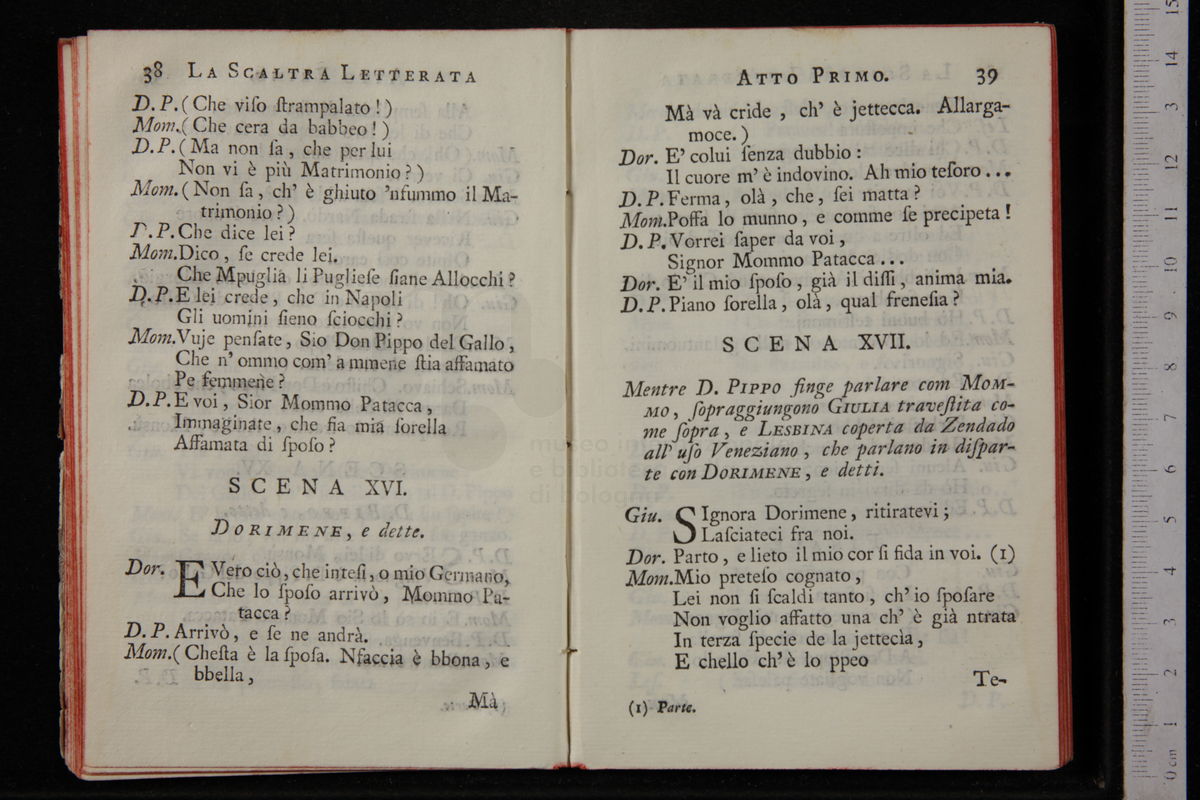 38 LA SCALTRA LETTERATA
D. P. (Che viſo ſtrampalato!)
Mom. (Che cera da babbeo!)
D. P. (Ma non ſa, che per lui
Non vi è più Matrimonio?)
Mom. (Non ſa, ch' è ghiuto 'nſummo il Ma-
trimonio?)
D. P. Che dice lei?
Mom. Dico, ſe crede lei.
Che Mpuglia li Puglieſe ſiane Allocchi?
D. P. E lei crede, che in Napoli
Gli uomini ſieno ſciocchi?
Mom. Vuje penſate, Sio Don Pippo del Gallo,
Che n' ommo com' a mmene ſtia affamato
Pe femmene?
D. P. E voi, Sior Mommo Patacca,
Immaginate, che ſia mia ſorella
Affamata di ſpoſo?
SCENA XVI.
DORIMENE, e dette.
Dor. E Vero ciò, che inteſi, o mio Germano,
Che lo ſpoſo arrivò, Mommo Pa-
tacca?
D. P. Arrivò, e ſe ne andrà.
Mom. (Cheſta è la ſpoſa. Nfaccia è bbona, e
bbella,
Mà
ATTO PRIMO. 39
Mà và cride, ch' è jettecca. Allarga-
moce.)
Dor. E' colui ſenza dubbio:
Il cuore m' è indovino. Ah mio teſoro...
D. P. Ferma, olà, che, ſei matta?
Mom. Poſſa lo munno, e comme ſe precipeta!
D. P. Vorrei ſaper da voi,
Signor Mommo Patacca...
Dor. E' il mio ſpoſo, già il diſſi, anima mia.
D. P. Piano ſorella, olà, qual freneſia?
SCENA XVII.
Mentre D. PIPPO finge parlare com MOM-
MO, ſopraggiungono GIULIA traveſtita co-
me ſopra, e LESBINA coperta da Zendado
all' uſo Veneziano, che parlano in diſpar-
te con DORIMENE, e detti.
Giu. SIgnora Dorimene, ritiratevi;
Laſciateci fra noi.
Dor. Parto, e lieto il mio cor ſi fida in voi. (1)
Mom. Mio preteſo cognato,
Lei non ſi ſcaldi tanto, ch' io ſpoſare
Non voglio affatto una ch' è già ntrata
In terza ſpecie de la jettecia,
E chello ch' è lo ppeo
Te-
(1) Parte.